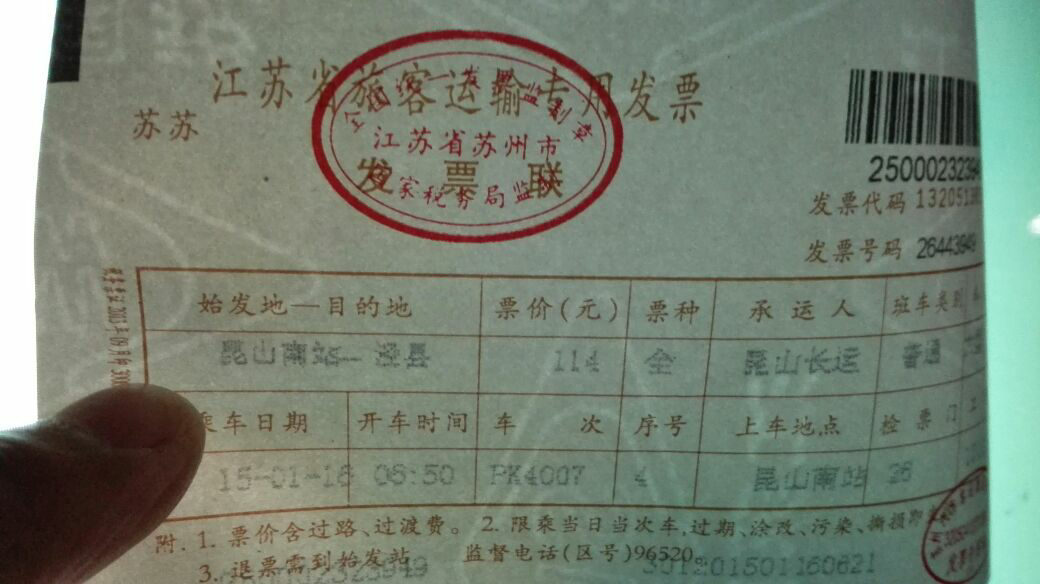 江苏省旅客运输专用发票
苏苏
全国统一发票监制章
江苏省苏州市
国家税务局监制
发票联
25000232394
发票代码 132051
发票号码 26443949
始发地—目的地 票价(元) 票种 承运人 班车类别
昆山南站— 泾县 114 全 昆山长运 普通
乘车日期 开车时间 车次 序号 上车地点 检票门
15-01-16 06:50 PK4007 4 昆山南站 26
附. 1. 票价含过路、过渡费。 2. 限乘当日当次车,过期、涂改、污染、撕损即
3. 退票需到始发站 监督电话(区号)96520。